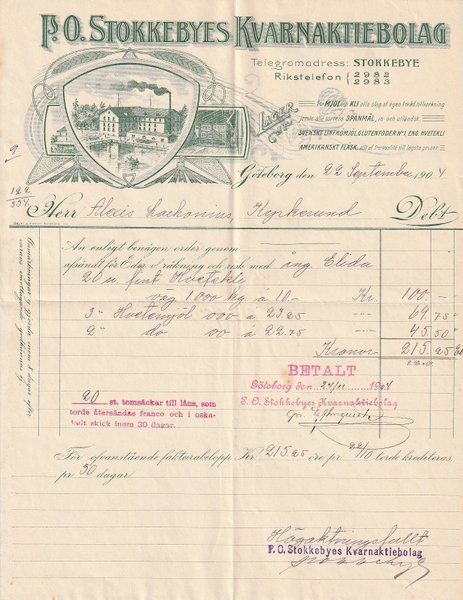 P. O. STOKKEBYES KVARNAKTIEBOLAG
Telegramadress: STOKKEBYE
Rikstelefon { 2982
2983
LAGER
af
För MJÖL och KLI alla slag af egen tillverkning
jemte alla sorters SPANMÅL, in- och utländsk.
SVENSKT LINFRÖMJÖL, GLUTENFODER No 1, ENG. HVETEKLI
AMERIKANSKT FLÄSK, allt af 1:ma kvalité till lägsta priser
9
122
554
Göteborg den 22 September 1904
Herr Alexis Zachonius, Kyrkesund Debt
An enligt benägen order genom
afsändt för Eder räkning och risk med ång. Elida
20 st fint Hvetekli
väg 1000 kg á 10.- Kr 100.-
3 " Hvetemjöl 000 á 23.25 --- 69.75
2 " do 00 á 22.75 --- 45.50
Kronor 215.25
BETALT
Göteborg den 24/11 1904
P. O. Stokkebyes Kvarnaktiebolag
20 st. tomsäckar till låns, som
torde återsändas franco och i oska-
dadt skick inom 30 dagar.
För ofvanstående fakturabelopp Kr 215.25 öre pr 22/10 torde krediteras
pr 30 dagar
Högaktningsfullt
P. O. Stokkebyes Kvarnaktiebolag